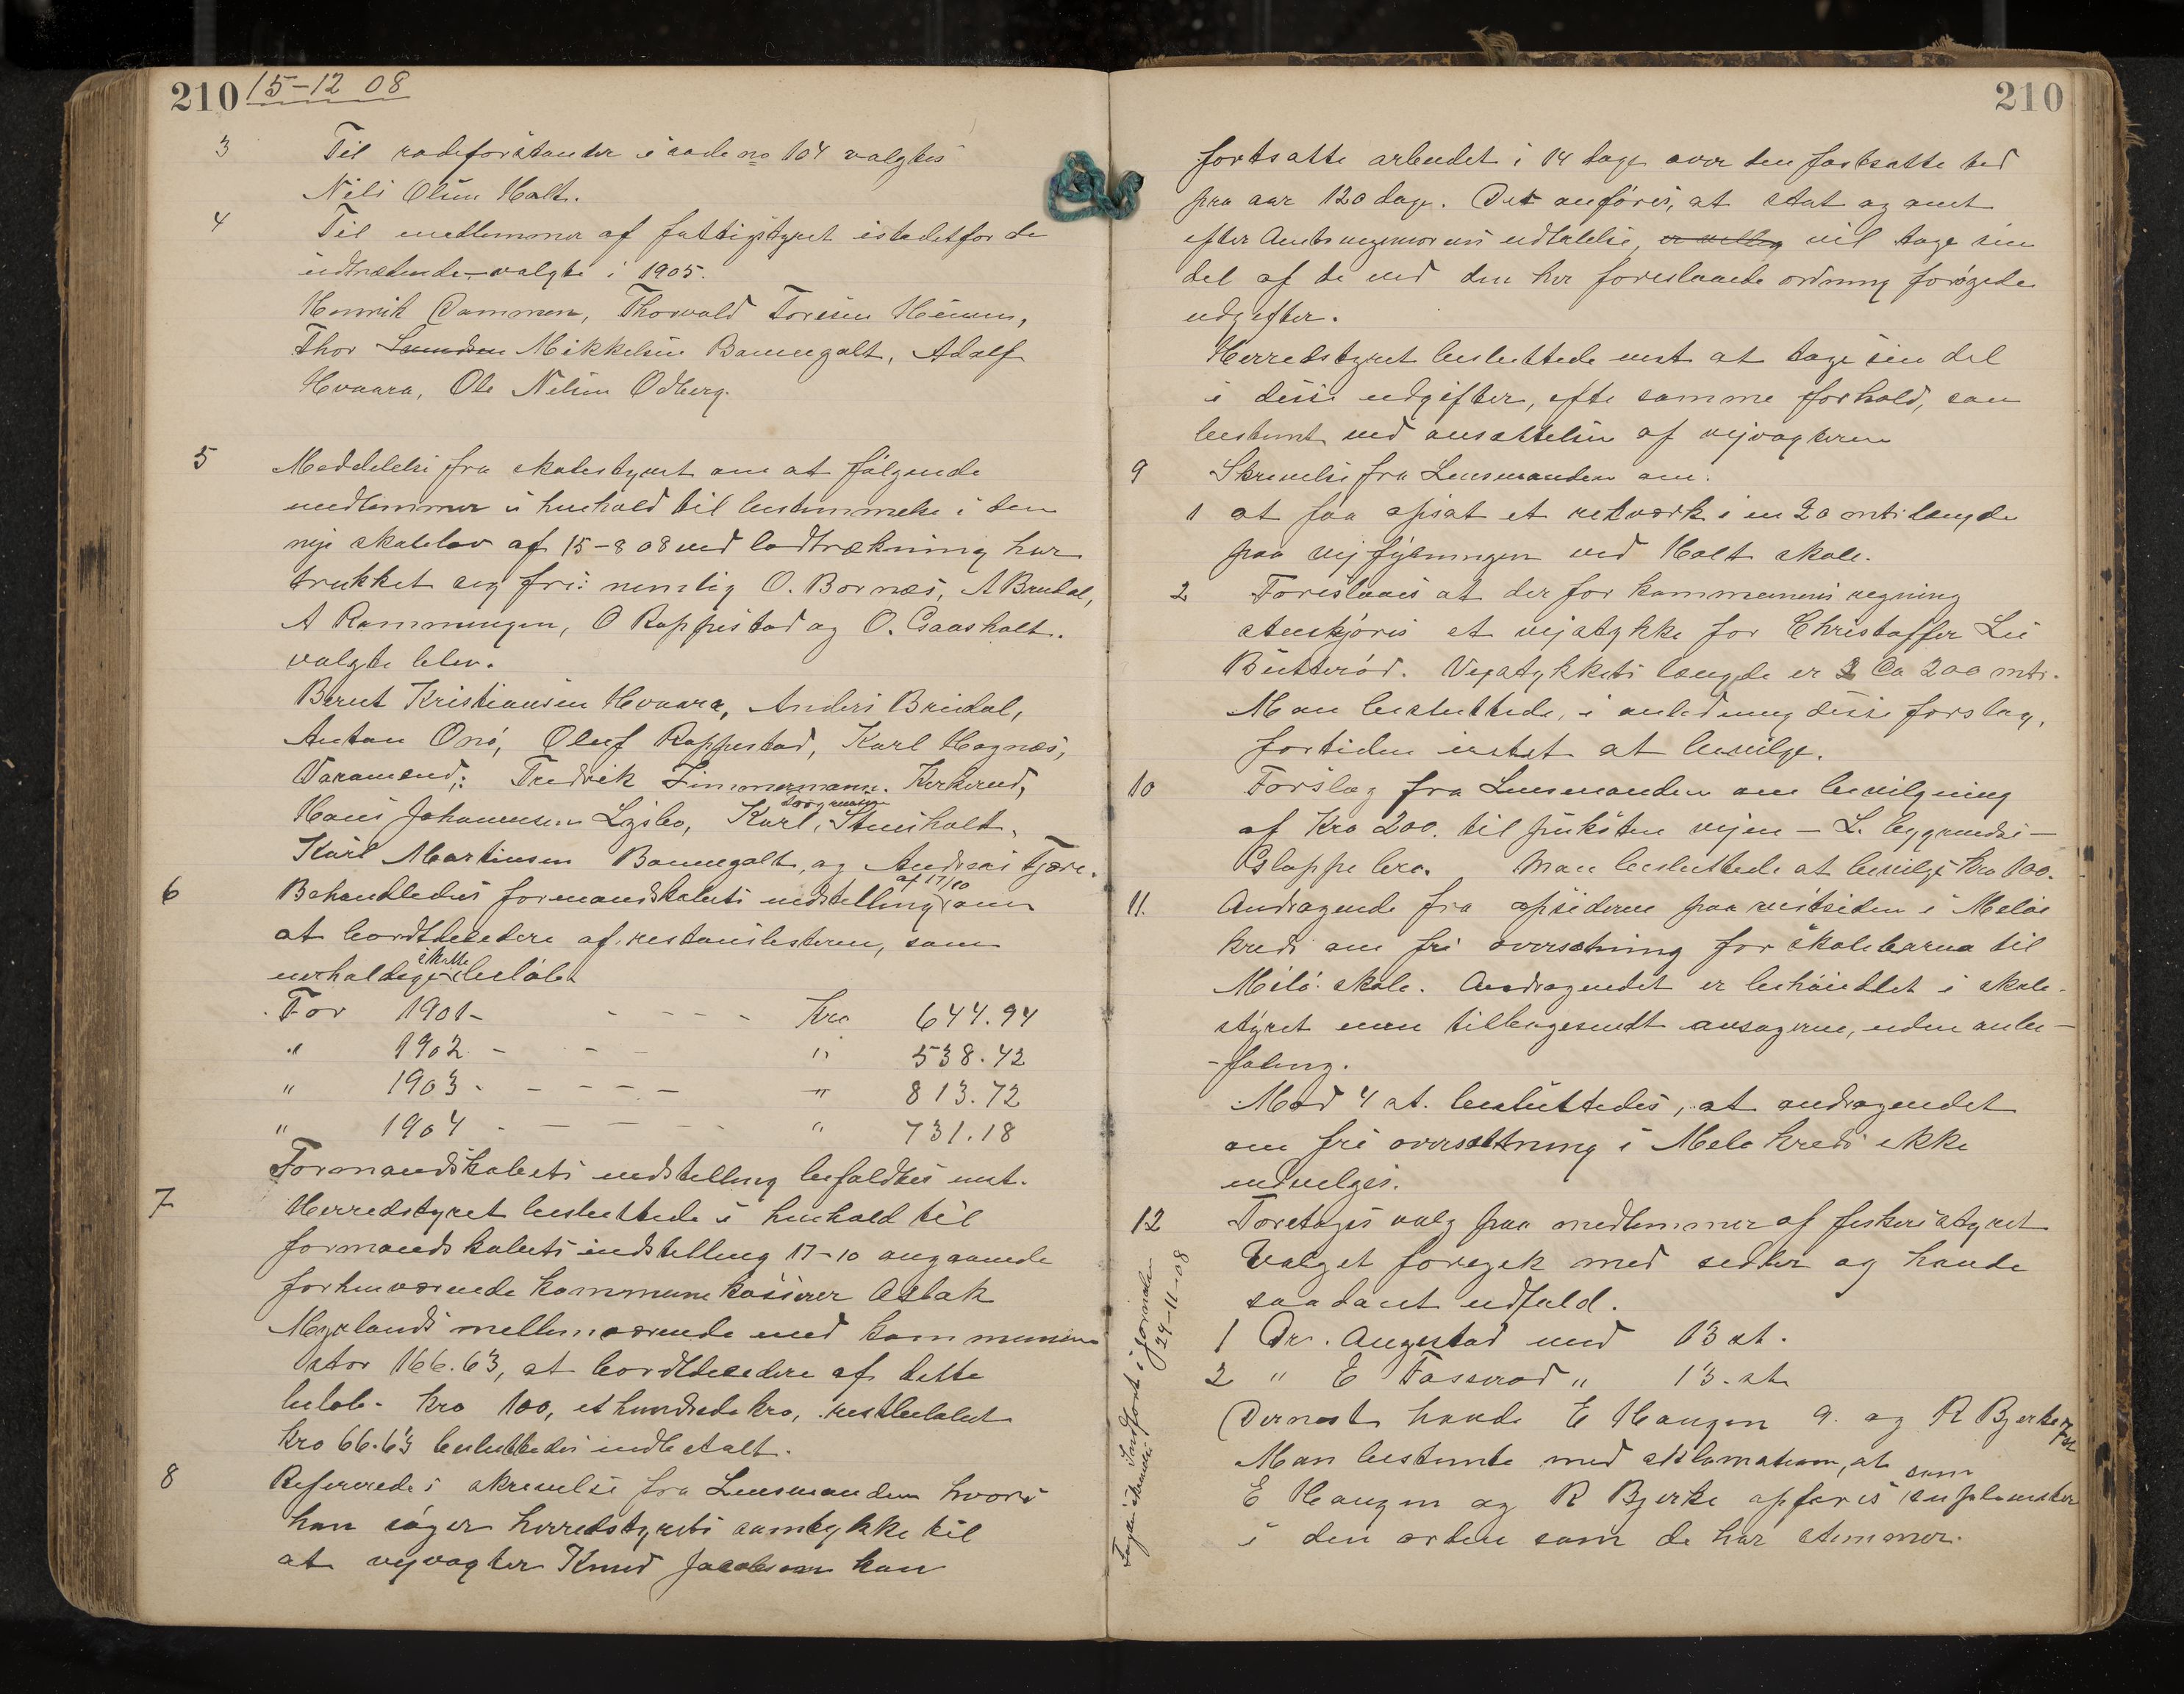 210 15-12 08
3 Til rodeforstander i rode no 104 valgtes
Nils Olsen Holt.
4 Til medlemmer af fattigstyret istedetfor de
udtrædende valgte i 1905.
Henrik Dammen, Thorvald Toresen Heian,
Thor Svendsen Mikkelsen Bauergalt, Adolf
Hvaara, Ole Nelsen Odberg.
5 Meddelelse fra skolestyret om at følgende
medlemmer i henhold til bestemmelse i den
nye skolelov af 15-8 08 ved lodtrækning har
trukket sig fri: nemlig O. Bornæs, A Brudal,
A Ramningen, O Rappestad og O. Gaasholt.
valgte blev.
Bernt Kristiansen Hvaara, Anders Brudal,
Anton Onø, Oluf Rappestad, Karl Hagnæs,
Varamænd: Fredrik Zimmermann. Kerkerud,
Hans Johannesen Lysebo, Karl Stensholt,
Karl Martinsen Bauergalt, og Andreas Fjære.
6 Behandledes formandskabets indstilling af 17/10 om
at bordtdecedere af restanslisterne, som
uerholdige skatte beløbet
For 1901 - - - - - Kro 644.94
" 1902 - - - " 538.42
" 1903 - - - - - " 813.72
" 1904 - - - - - " 731.18
Formandskabets indstilling bifaldtes enst.
7 Herredstyret besluttede i henhold til
formandskabets indstilling 17-10 angaaende
forhenværende kommunekasserer Aslak
Myrlands mellemværende med kommunen
stor 166.63, at bordtdecedere af dette
beløb - kro 100, et hundrede kro, restbeløbet
kro 66.63 besluttedes indbetalt.
8 Refereredes skrivelse fra Lensmanden hvori
han søger herredstyrets samtykke til
at vejvogter Knud Jacobsen kan
210
fortsatte arbeidet i 14 dage over den fastsatte tid
pra aar 120 dage. Det anføres, at stat og amt
efter Amtsingeniørens udtalelse, er villig vil tage sin
del af de ved den her foreslaaede ordning forøgede
udgifter.
Herredstyret besluttede enst at tage sin del
i disse udgifter, efter samme forhold, som
bestemt ved ansættelsen af vejvogteren
9 Skrivelse fra Lensmanden om:
1 at faa opsat et rekværk i en 20 mtr længde
paa vejfyldningen ved Holt skole.
2 Foreslaaes at der for kommunens regning
stenkjøres et vejstykke for Christoffer Lie
Butterød. Vejstykkets længde er Ca 200 mtr.
Man besluttede, i anledning disse forslag,
fortiden intet at bevilge.
10 Forslag fra Lensmanden om bevilgning
af Kro 200. til puksten vejen - L. byggrænse -
Gloppe bro. Man besluttede at bevilge kro 100.
11. Andragende fra opsidderne paa vestsiden i Meløe
kreds om fri oversætning for skolebarna til
Melø skole. Andragendet er behandlet i skole-
styret men tilbagesendt ansøgerne, uden anbe-
-faling.
Mod 4 st. besluttedes, at andragendet
om fri oversætning i Melø kreds ikke
indvilges.
12 Foretages valg paa medlemmer af fiskeristyret
Valget foregik med sedler og havde
saadant udfald.
1 Dr. Augestad med 13 st.
2 " E Fasserod " 13. st.
Dernæst havde E Haugen 9. og R Bjerke 7 st
Man bestemte med akklamation, at
E Haugen og R Bjerke opføres som suplenter
i den orden som de har stemmer.
Indført i journalen
29-11-08